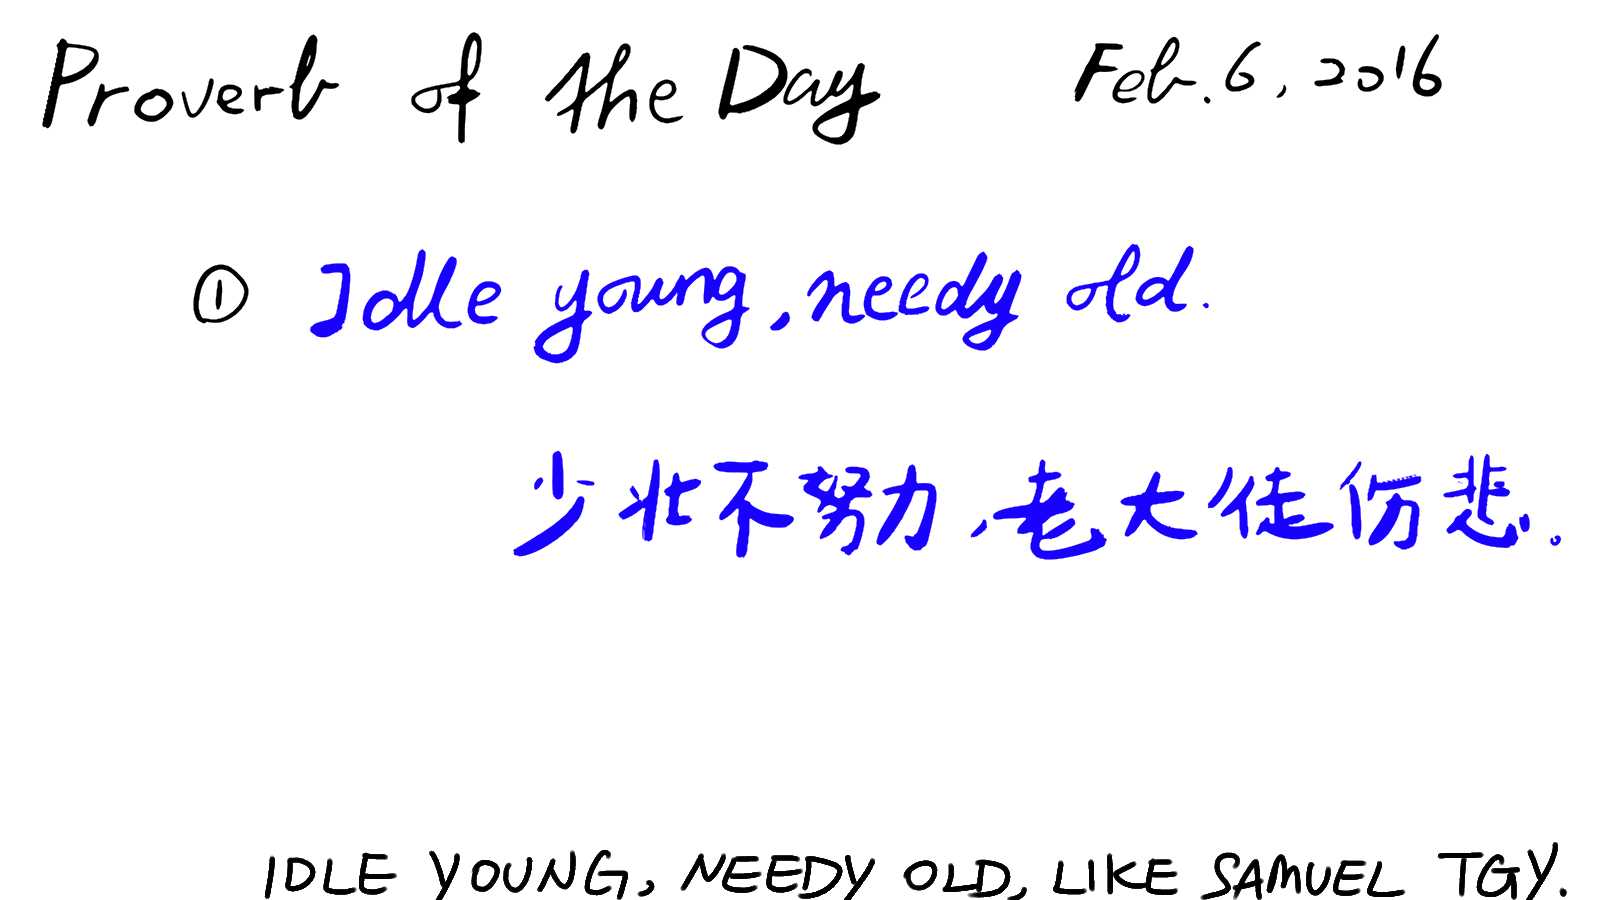 Proverb of the Day Feb. 6, 2016
① Idle young, needy old.
少壮不努力,老大徒伤悲。
IDLE YOUNG, NEEDY OLD, LIKE SAMUEL TGY.